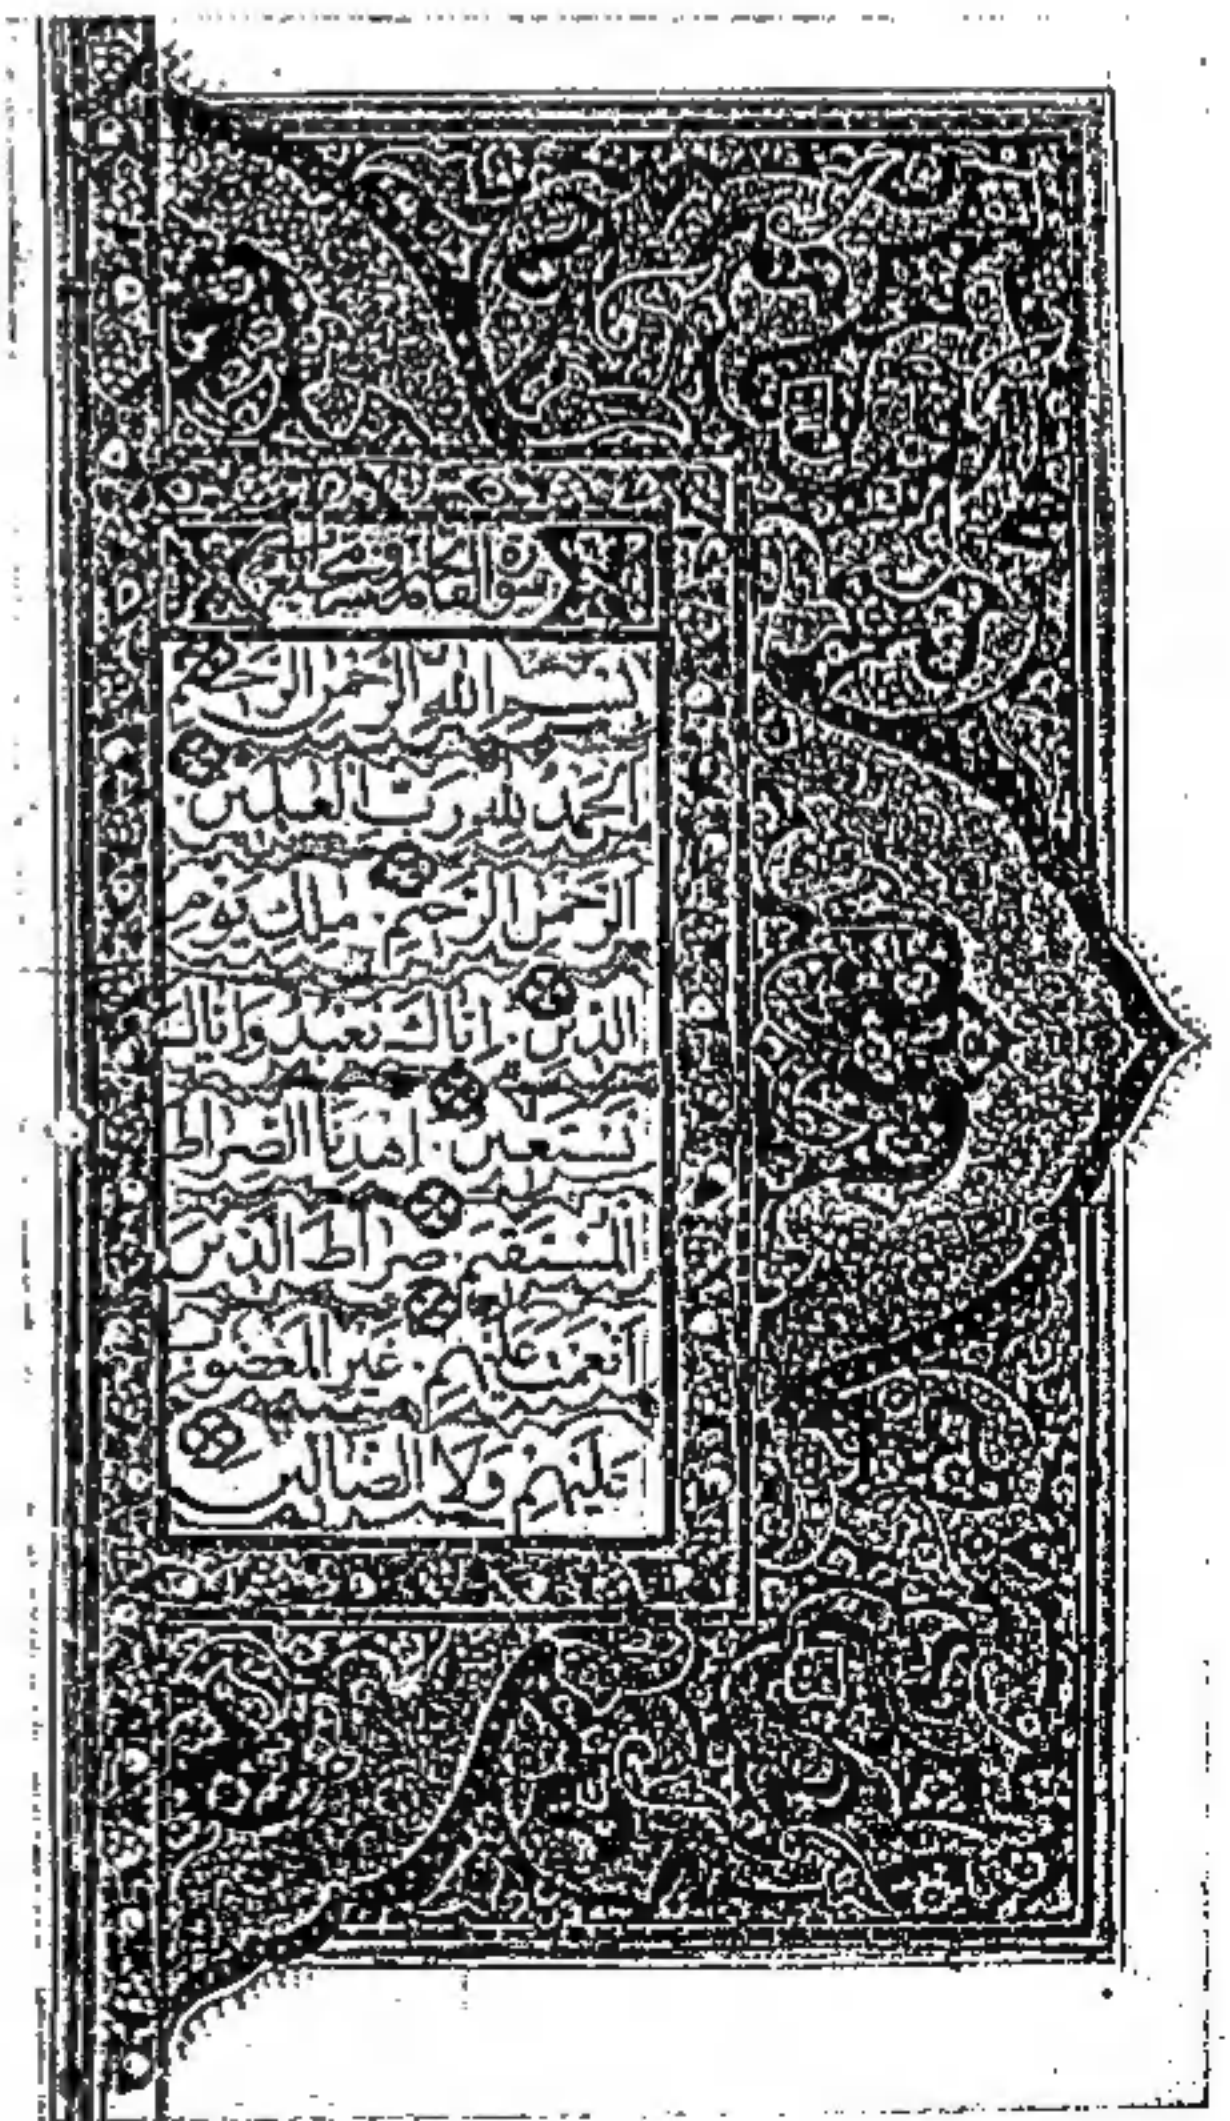 بسم الله الرحمن الرحيم
الحمد لله رب العلمين
الرحمن الرحيم ملك يوم
الدين إياك نعبد وإياك
نستعين اهدنا الصراط
المستقيم صراط الذين
أنعمت عليهم غير المغضوب
عليهم ولا الضالين